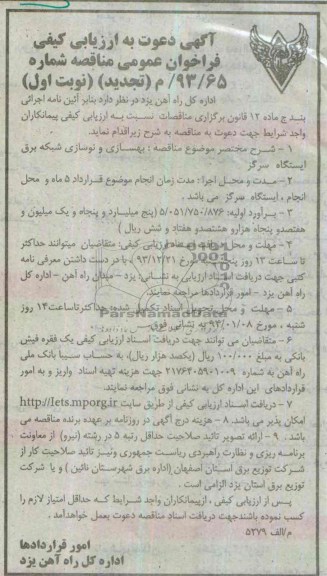 آگهی دعوت به ارزیابی کیفی
فراخوان عمومی مناقصه شماره
۹۳/۶۵/ م (تجدید) (نوبت اول)
اداره کل راه آهن یزد در نظر دارد بنابر آئین نامه اجرائی
بند ج ماده ۱۲ قانون برگزاری مناقصات نسبت به ارزیابی کیفی پیمانکاران
واجد شرایط جهت دعوت به مناقصه به شرح زیر اقدام نماید.
۱ - شرح مختصر موضوع مناقصه : بهسازی و نوسازی شبکه برق
ایستگاه سرگز
۲ - مدت و محل اجرا : مدت زمان انجام موضوع قرارداد ۵ ماه و محل
انجام ، ایستگاه سرگز می باشد .
۳ - برآورد اولیه: ۵/۰۵۱/۷۵۰/۸۷۶ (پنج میلیارد و پنجاه و یک میلیون و
هفتصدو پنجاه هزارو هشتصدو هفتاد و شش ریال )
۴ - مهلت و محل دریافت اسناد ارزیابی کیفی: متقاضیان میتوانند حداکثر
تا ساعت ۱۳ روز مورخ ۹۳/۱۲/۲۱ ، با در دست داشتن معرفی نامه
کتبی جهت دریافت اسناد ارزیابی به نشانی: یزد - میدان راه آهن - اداره کل
راه آهن یزد - امور قراردادها مراجعه نمایند.
۵ - مهلت و محل تحویل اسناد تکمیل شده: حداکثر تا ساعت ۱۴ روز
شنبه ، مورخ ۹۳/۰۱/۰۸ به نشانی فوق
۶ - متقاضیان می توانند جهت دریافت اسناد ارزیابی کیفی یک فقره فیش
بانکی به مبلغ ۱۰۰/۰۰۰ ریال (یکصد هزار ریال)، به حساب سیبا بانک ملی
راه آهن به شماره ۲۱۷۶۴۰۵۹۰۱۰۰۹ جهت هزینه تهیه اسناد واریز و به امور
قراردادهای این اداره کل به نشانی فوق مراجعه نمایند.
۷ - دریافت اسناد ارزیابی کیفی از طریق سایت http://Iets.mporg.ir
امکان پذیر می باشد. ۸ - هزینه درج آگهی در روزنامه بر عهده برنده مناقصه می
باشد . ۹ - ارائه تصویر تائید صلاحیت حداقل رتبه ۵ در رشته (نیرو) از معاونت
برنامه ریزی و نظارت راهبردی ریاست جمهوری ونیز تائید صلاحیت کار از
شرکت توزیع برق استان اصفهان (اداره برق شهرستان نائین ) و یا شرکت
توزیع برق استان یزد الزامی است .
پس از ارزیابی کیفی ، ازپیمانکاران واجد شرایط که حداقل امتیاز لازم را
کسب نموده باشندجهت دریافت اسناد مناقصه دعوت بعمل خواهدآمد .
م/الف ۵۲۷۹
امور قراردادها
اداره کل راه آهن یزد
ParsNamadData